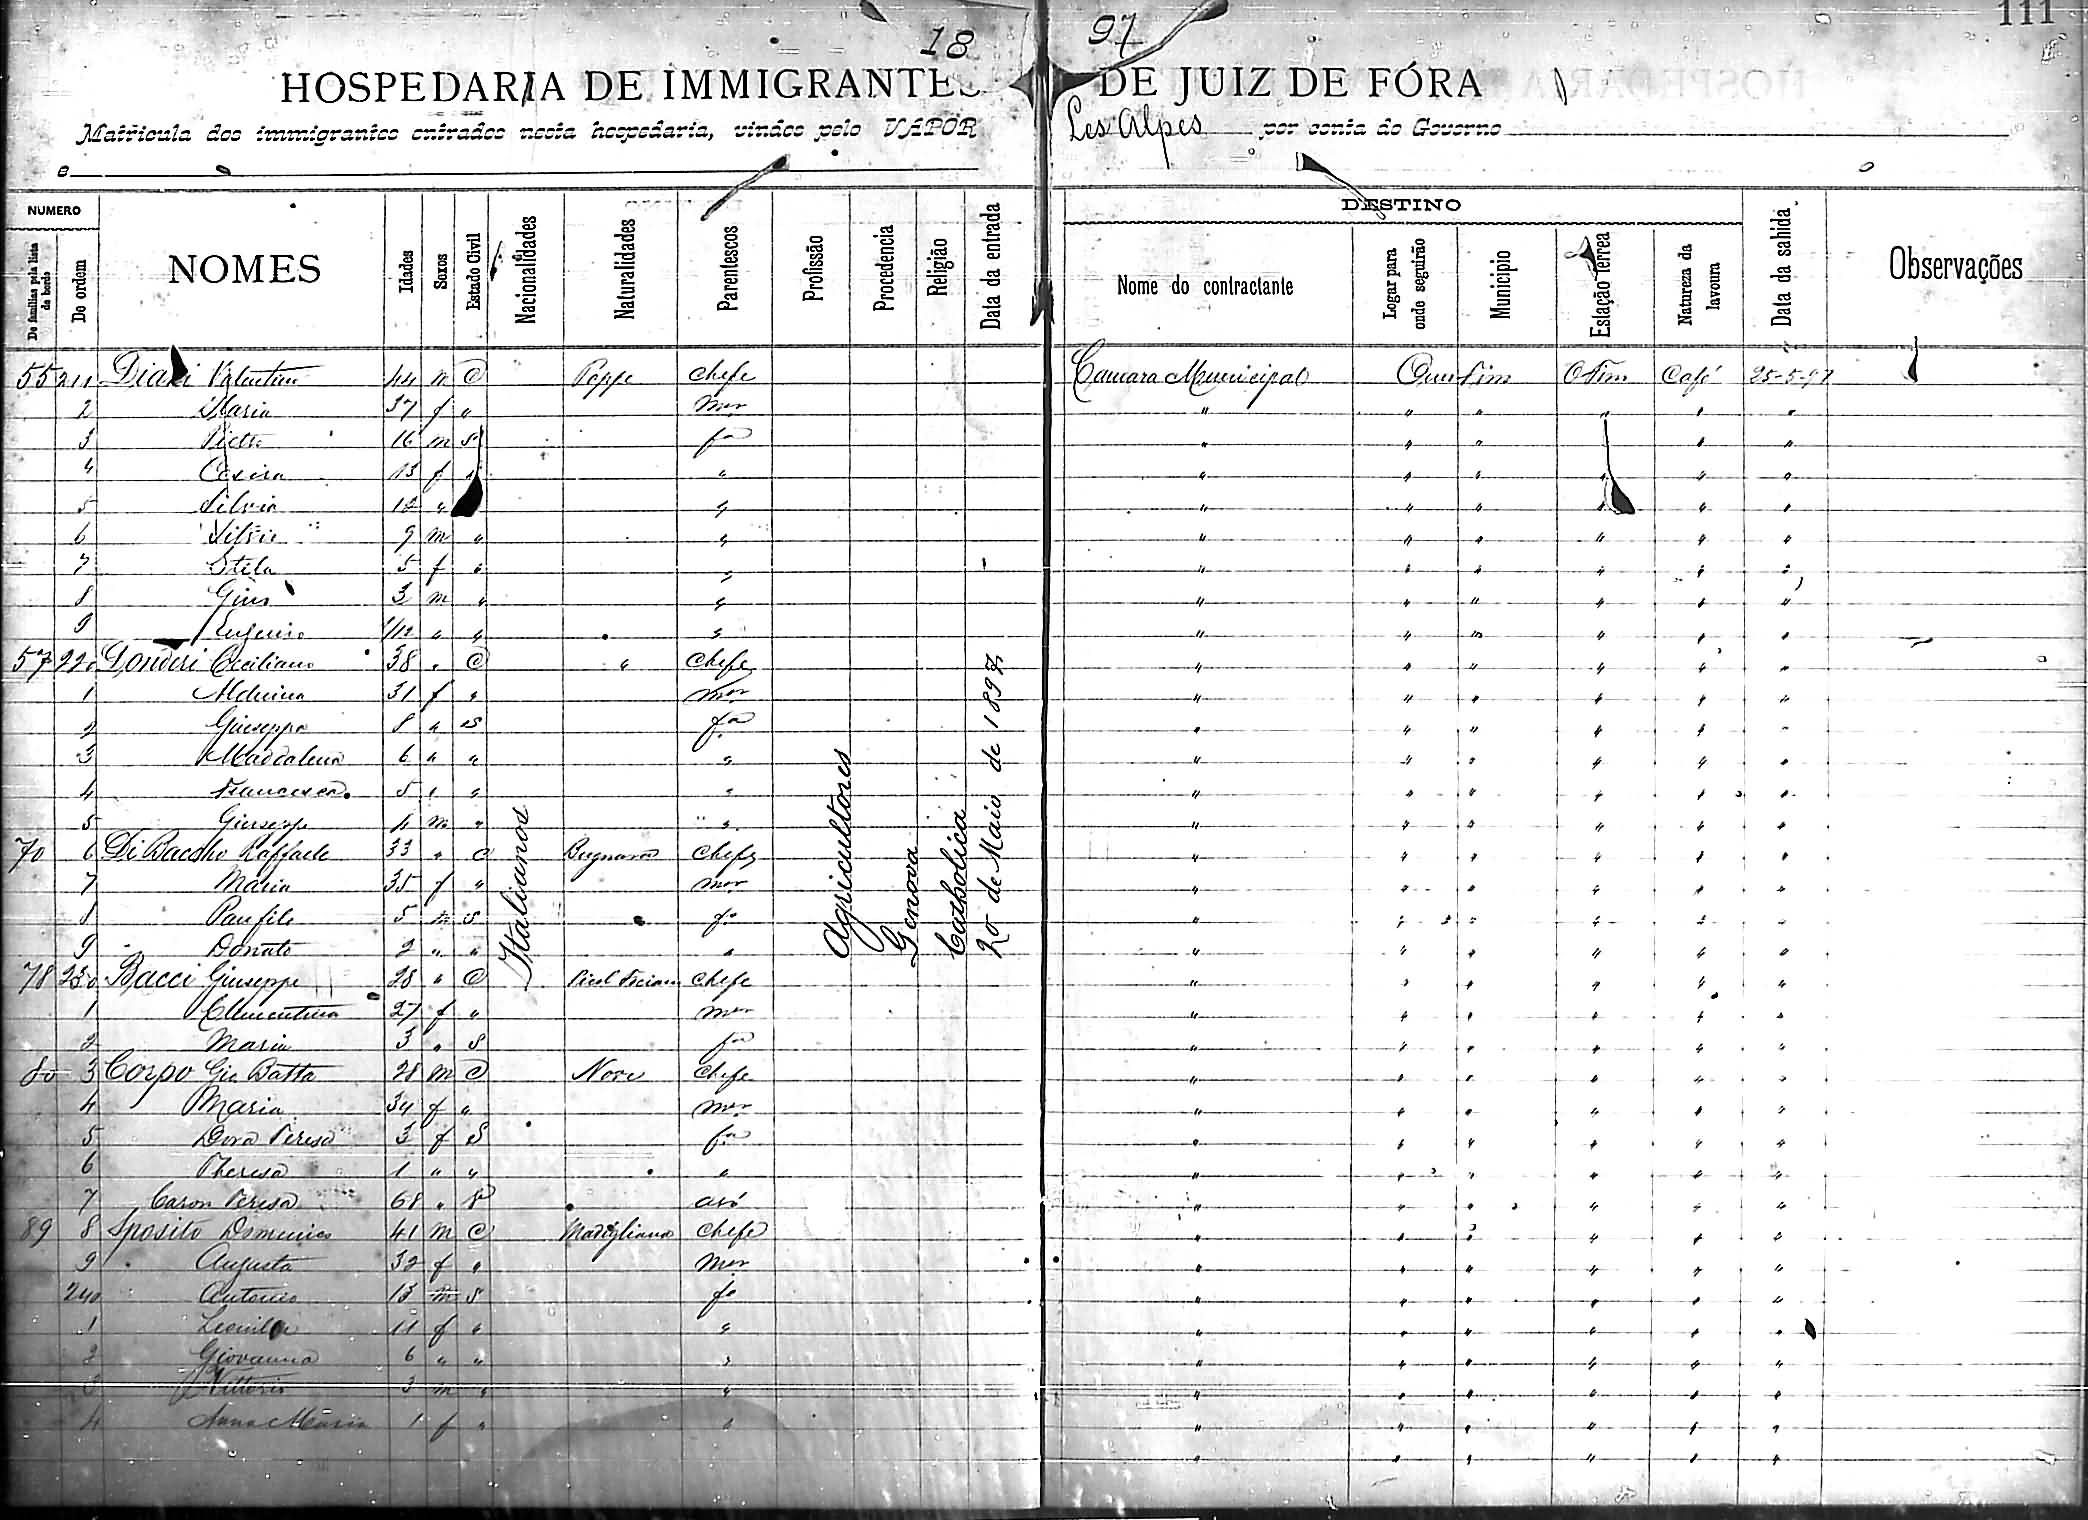 111
18 97
HOSPEDARIA DE IMMIGRANTES DE JUIZ DE FÓRA
Matricula dos immigrantes entrados nesta hospedaria, vindos pelo VAPOR Les Alpes por conta do Governo
e
NUMERO
De familias pela lista de bordo
De ordem
NOMES
Idades
Sexos
Estado Civil
Nacionalidades
Naturalidades
Parentescos
Profissão
Procedencia
Religião
Data da entrada
DESTINO
Nome do contractante
Logar para onde seguirão
Municipio
Estação ferrea
Natureza da lavoura
Data da sahida
Observações
Italianos
Agricultores
Genova
Catholica
20 de Maio de 1897
55 211 Diani Valentino 44 m C Poppe Chefe Camara Municipal Café 25-5-97
2 Maria 37 f " mer " " " " " "
3 16 m S fo " " " " " "
4 Cesira 13 f " " " " " " " "
5 Silvia 12 " " " " " " " "
6 Silvio 9 m " " " " " " " "
7 Stela 5 f " " " " " " " "
8 3 m " " " " " " " "
9 Eugenio 1/12 " " " " " " " " "
57 220 Donderi Ceciliano 38 " C " Chefe " " " " " "
1 31 f " mer " " " " " "
2 Giuseppa 8 " S fa " " " " " "
3 Maddalena 6 " " " " " " " " "
4 Francesca 5 " " " " " " " " "
5 Giuseppe 4 m " " " " " " " "
70 6 Di Baccho Raffaele 33 " C Bugnara Chefe " " " " " "
7 Maria 35 f " mer " " " " " "
8 Panfilo 5 m S fo " " " " " "
9 Donato 2 " " " " " " " " "
78 230 Bacci Giuseppe 28 " C Chefe " " " " " "
1 Clementina 27 f " mer " " " " " "
2 Maria 3 " S fa " " " " " "
80 3 Corpo Gio Batta 28 m C Nove Chefe " " " " " "
4 Maria 34 f " mer " " " " " "
5 Dora Teresa 3 f S fa " " " " " "
6 Theresa 1 " " " " " " " " "
7 Caron Teresa 68 " V avó " " " " " "
89 8 Sposito Domenico 41 m C Madigliana Chefe " " " " " "
9 Augusta 32 f " mer " " " " " "
240 Antonio 13 m S fo " " " " " "
1 11 f " " " " " " " "
2 Giovanna 6 " " " " " " " " "
3 Vittorio 3 m " " " " " " " "
4 Anna Maria 1 f " " " " " " " "
" " " " " "